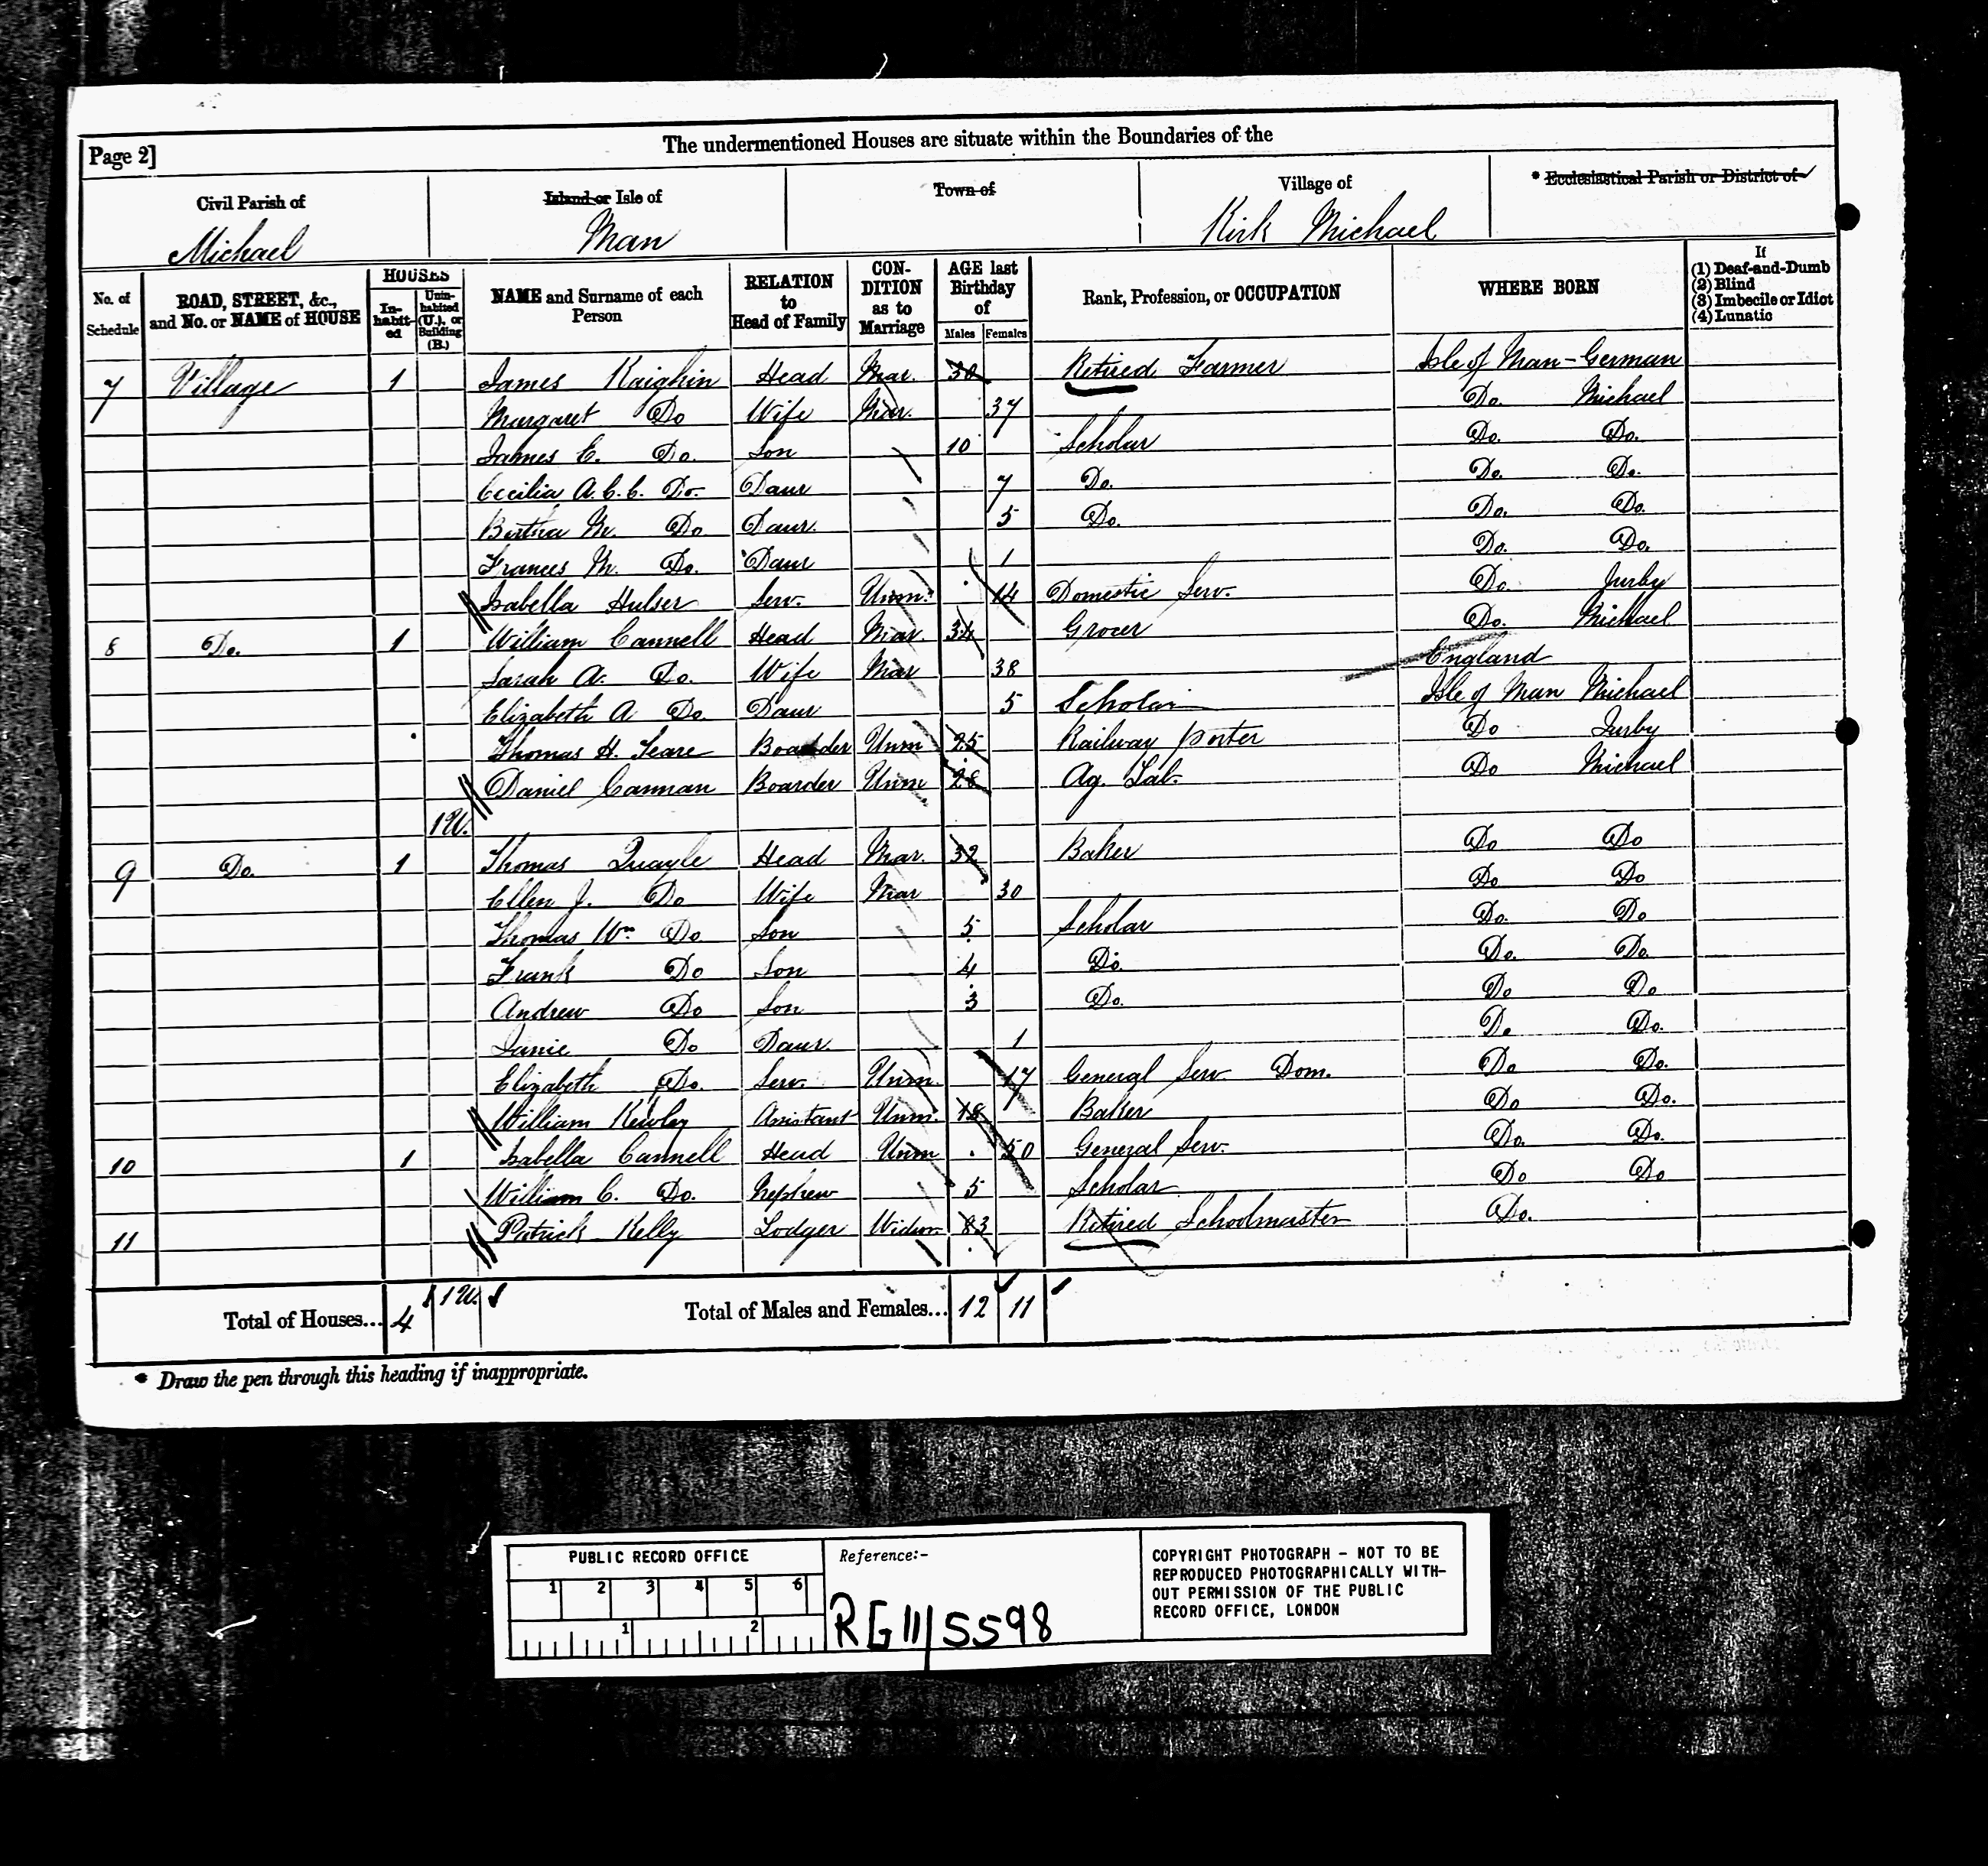 The undermentioned Houses are situate within the Boundaries of the
Page 2]
Civil Parish of
Michael
Island or Isle of
Man
Town of
Village of
Kirk Michael
* Ecclesiastical Parish or District of
No. of Schedule
ROAD, STREET, &c., and No. or NAME of HOUSE
HOUSES
In-habit-ed
Unin-habited (U.), or Building (B.)
NAME and Surname of each Person
RELATION to Head of Family
CON-DITION as to Marriage
AGE last Birthday of
Males Females
Rank, Profession, or OCCUPATION
WHERE BORN
If
(1) Deaf-and-Dumb
(2) Blind
(3) Imbecile or Idiot
(4) Lunatic
7 Village 1 James Kaighin Head Mar. Retired Farmer Isle of Man - German
Margaret Do Wife Mar. 37 Do. Michael
James C. Do. Son 10 Scholar Do. Do.
Cecilia A. C. C. Do. Daur 7 Do. Do. Do.
Bertha M. Do. Daur. 5 Do. Do. Do.
Frances M. Do. Daur 1 Do. Do.
Isabella Hulser Serv. Unm. 14 Domestic Serv. Do. Jurby
8 Do. 1 William Cannell Head Mar. 34 Grocer Do. Michael
Sarah A. Do. Wife Mar 38 England
Elizabeth A Do. Daur 5 Scholar Isle of Man Michael
Thomas H. Teare Boarder Unm 25 Railway porter Do Jurby
Daniel Cannan Boarder Unm 28 Ag. Lab. Do Michael
1 U.
9 Do. 1 Thomas Quayle Head Mar. 32 Baker Do Do
Ellen J. Do Wife Mar 30 Do Do
Thomas Wm Do Son 5 Scholar Do. Do
Frank Do Son 4 Do. Do. Do.
Andrew Do Son 3 Do. Do Do
Janie Do Daur. 1 Do Do.
Elizabeth Do. Serv. Unm. 17 General Serv. Dom. Do Do.
William Kewley Assistant Unm. 18 Baker Do Do.
10 1 Isabella Cannell Head Unm 50 General Serv. Do. Do.
William C. Do. Nephew 5 Scholar Do Do
11 Patrick Kelly Lodger Widow. 83 Retired Schoolmaster Do.
Total of Houses... 4 1 U. Total of Males and Females... 12 11
* Draw the pen through this heading if inappropriate.
PUBLIC RECORD OFFICE
1 2 3 4 5 6
1 2
Reference:-
RG 11/5598
COPYRIGHT PHOTOGRAPH - NOT TO BE
REPRODUCED PHOTOGRAPHICALLY WITH-
OUT PERMISSION OF THE PUBLIC
RECORD OFFICE, LONDON